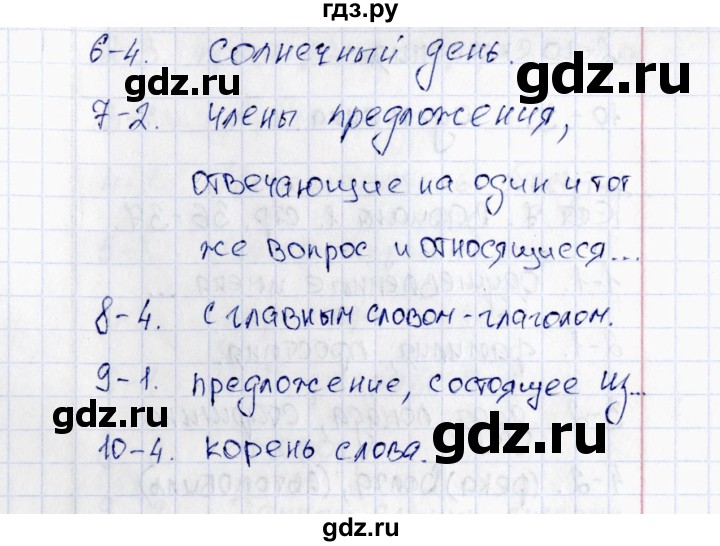 гдз.ру
6-4. Солнечный день.
gdz.ru gdz.ru
7-2. члены предложения,
отвечающие на один и тот
gdz.ru
же вопрос и относящиеся...
8-4. с главным словом-глаголом.
gdz.ru
9-1. предложение, состоящее из...
gdz.ru
10-4. корень слова.
gdz.ru